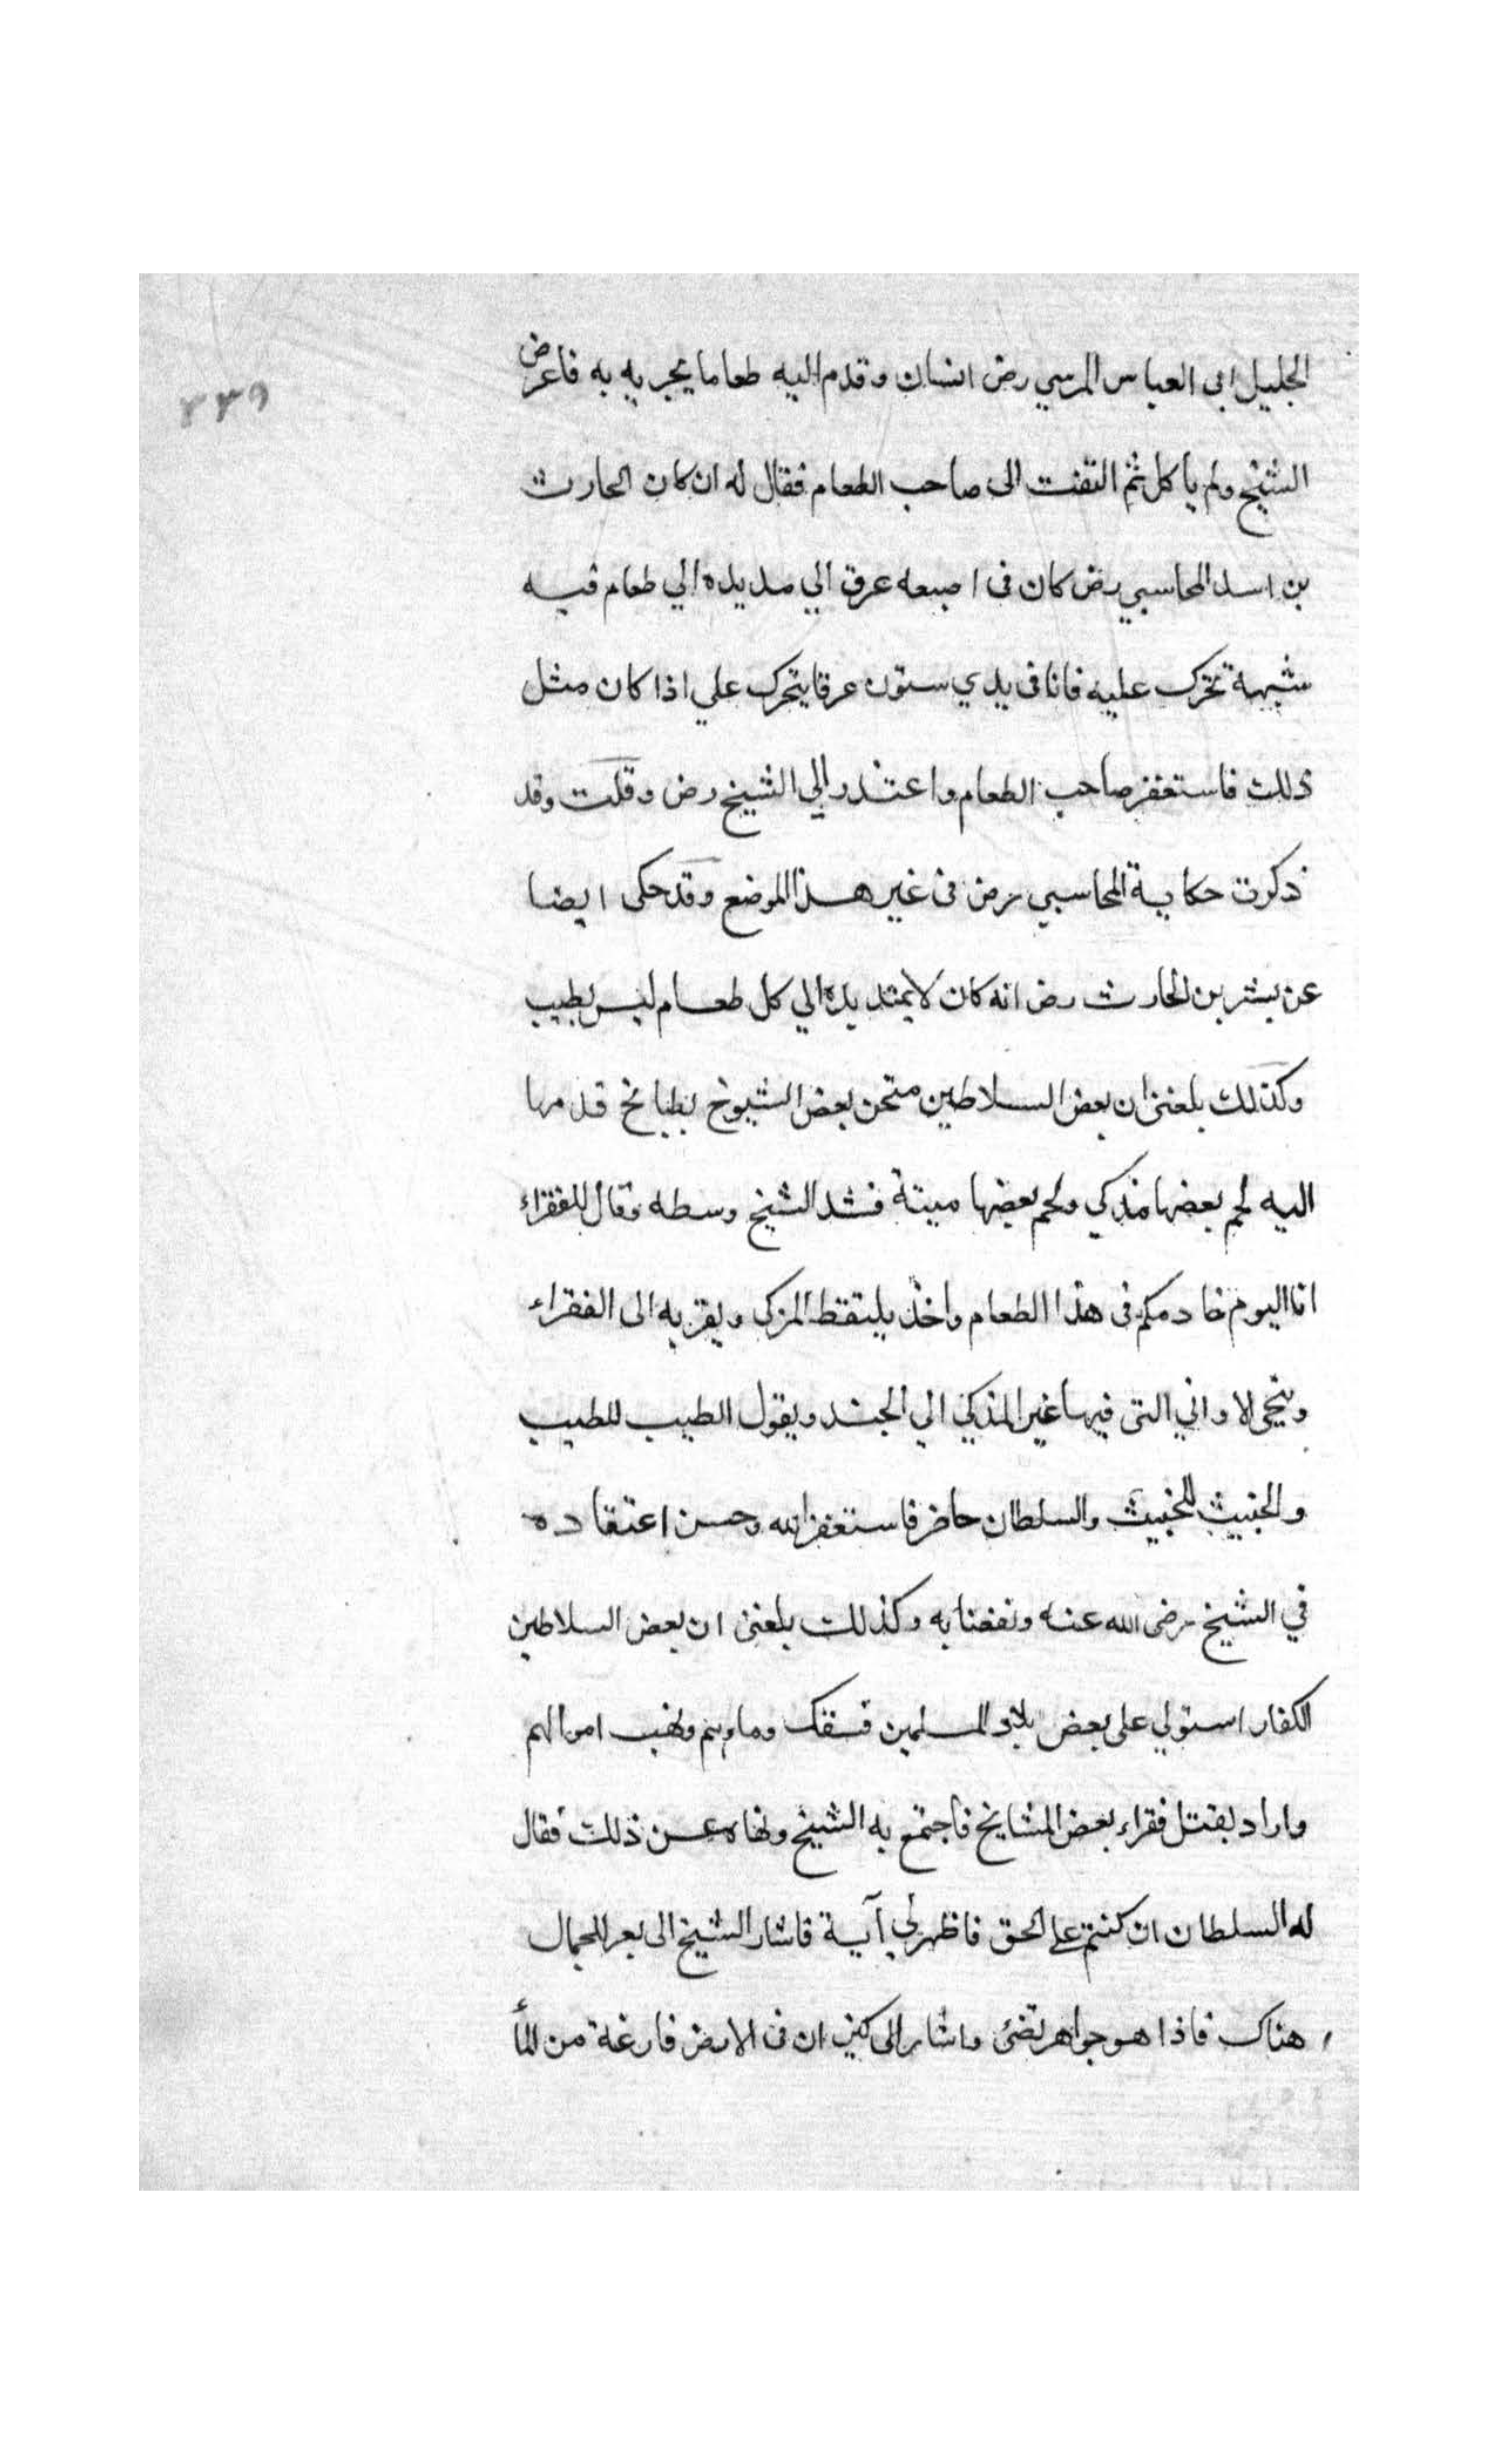 الجليل ابى العباس المرسي رض انسان وقدم اليه طعاما يجربه به فاعرض
٣٣٩
الشيخ ولم ياكل ثم التفت الى صاحب الطعام فقال له ان كان الحارث
بن اسد المحاسبي رض كان فى اصبعه عرق الي مد يده الي طعام فيه
شبهة تحرك عليه فانا فى يدي ستون عرقا يتحرك علي اذا كان مثل
ذلك فاستغفر صاحب الطعام واعتذر الي الشيخ رض وقلت وقد
ذكرت حكاية المحاسبي رض فى غير هذا الموضع وقد حكى ايضا
عن بشر بن الحارث رض انه كان لا يمتد يده الي كل طعام ليس بطيب
وكذلك بلغنى ان بعض السلاطين متحن بعض الشيوخ بطبائخ قدمها
اليه لحم بعضها مذكي ولحم بعضها ميتة فشد الشيخ وسطه وقال للفقراء
انا اليوم خادمكم فى هذا الطعام واخذ يلتقط المزكى ويقربه الى الفقراء
وينحى لاواني التى فيها غير المذكي الي الجند ويقول الطيب للطيب
والخبيث للخبيث والسلطان حاضر فاستغفر الله وحسن اعتقاده
في الشيخ رضى الله عنه ونفعنا به وكذلك بلغنى ان بعض السلاطين
الكفار استولي على بعض بلاد المسلمين فسفك وماوهم ونهب اموالهم
واراد بقتل فقراء بعض المشايخ فاجتمع به الشيخ ونهاه عن ذلك فقال
له السلطان ان كنتم على الحق فاظهر لي آية فاشار الشيخ الى بعر للجمال
هناك فاذا هو جواهر تضئ واشار الى كيزان فى الارض فارغة من المأ